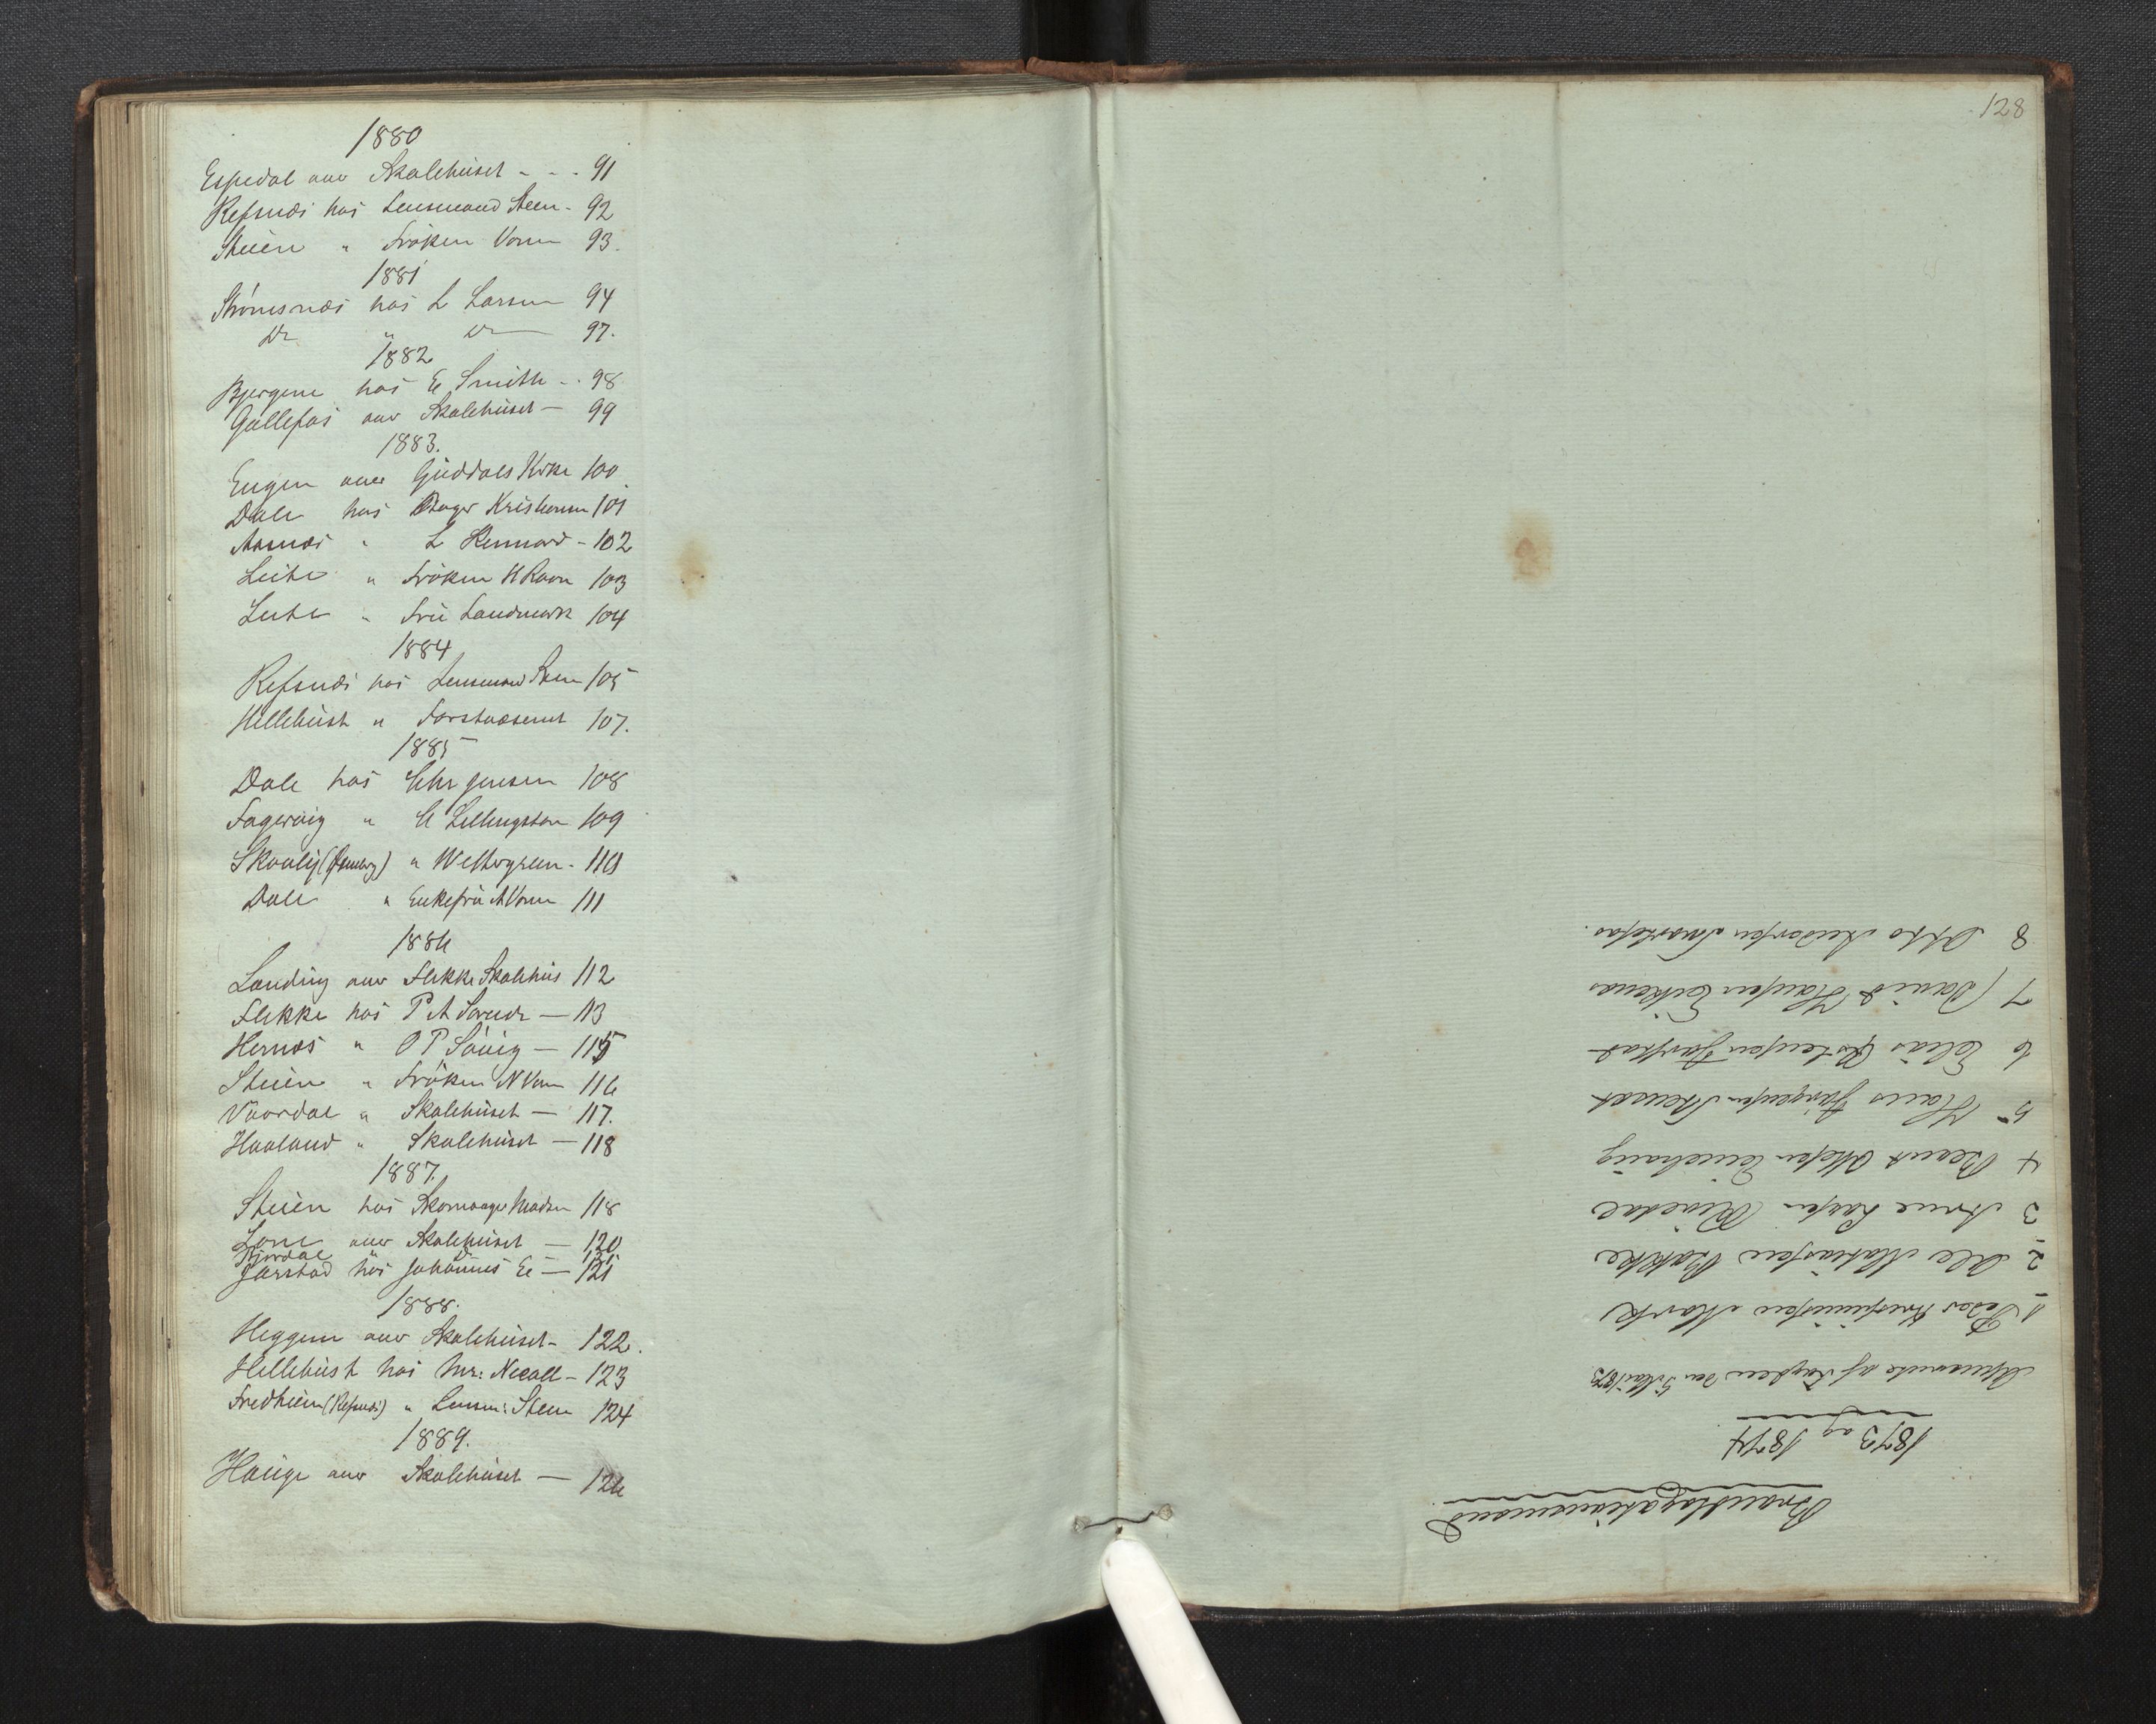 1880
Espedal anv Skolehuset - - - 91
Refsnæs hos Lensmand Steen - 92
Steien " Frøken Vonn 93.
1881
Strømsnæs hos L Larsen 94
Do " Do 97.
1882
Bjergene hos E. Smith - . 98
Gallefos anv Skolehuset — 99
1883.
Engen anv Guddals Kirke 100
Dale hos Bager Kristensen 101
Aasnæs " L Rennord - 102
Leite " Frøken H Ravn 103
Leite " Fru Landmark 104
1884
Refsnæs hos Lensmand Steen 105
Hellebust " Forstvæsenet 107.
1885
Dale hos Chr Jensen 108
Fagervig " C Lillingston 109
Skovlij " Wettergreen - 110
Dale " Enkefru A Vonn 111
1886
Landing anv Flekke Skolehus 112
Flekke hos P A Sørude — 113
Hernæs " O P Søvig — 115
Steien " Frøken N Vonn 116
Vaardal " Skolehuset — 117.
Haaland " Skolehuset — 118
1887.
Steien hos Skomager Madsen 118
Lone anv Skolehuset — 120
Bjordal " D
Jarstad hos Johannes E — 121
1888.
Heggen anv Skolehuset - 122.
Hellebust hos Mr: Nicoll - 123
Fredheim (Refsnæs) " Lensm: Steen 124
1889.
Hauge anv Skolehuset — 126
128
Brandtaxationsmænd
1873 og 1874
Opnævnte af Fogden den 5 Mai 1873.
1 Peder Mork
2 Ole Mathiassen Bakke
3 Arne Larsen Rivedal
4 Bernt Olsen
5 Hans Jørgensen
6 Elias Jarstad
7 David Hansen Eikenæs
8 Otto Andersen